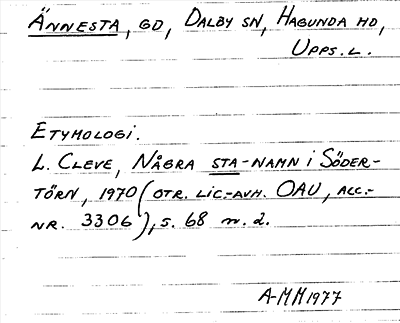 Ännesta, gd, Dalby sn, Hagunda hd,
Upps. l.
Etymologi.
L. Cleve, Några sta-namn i Söder-
törn, 1970 (otr. lic.-avh. OAU, acc.-
nr. 3306), s. 68 n. 2.
A-MH 1977